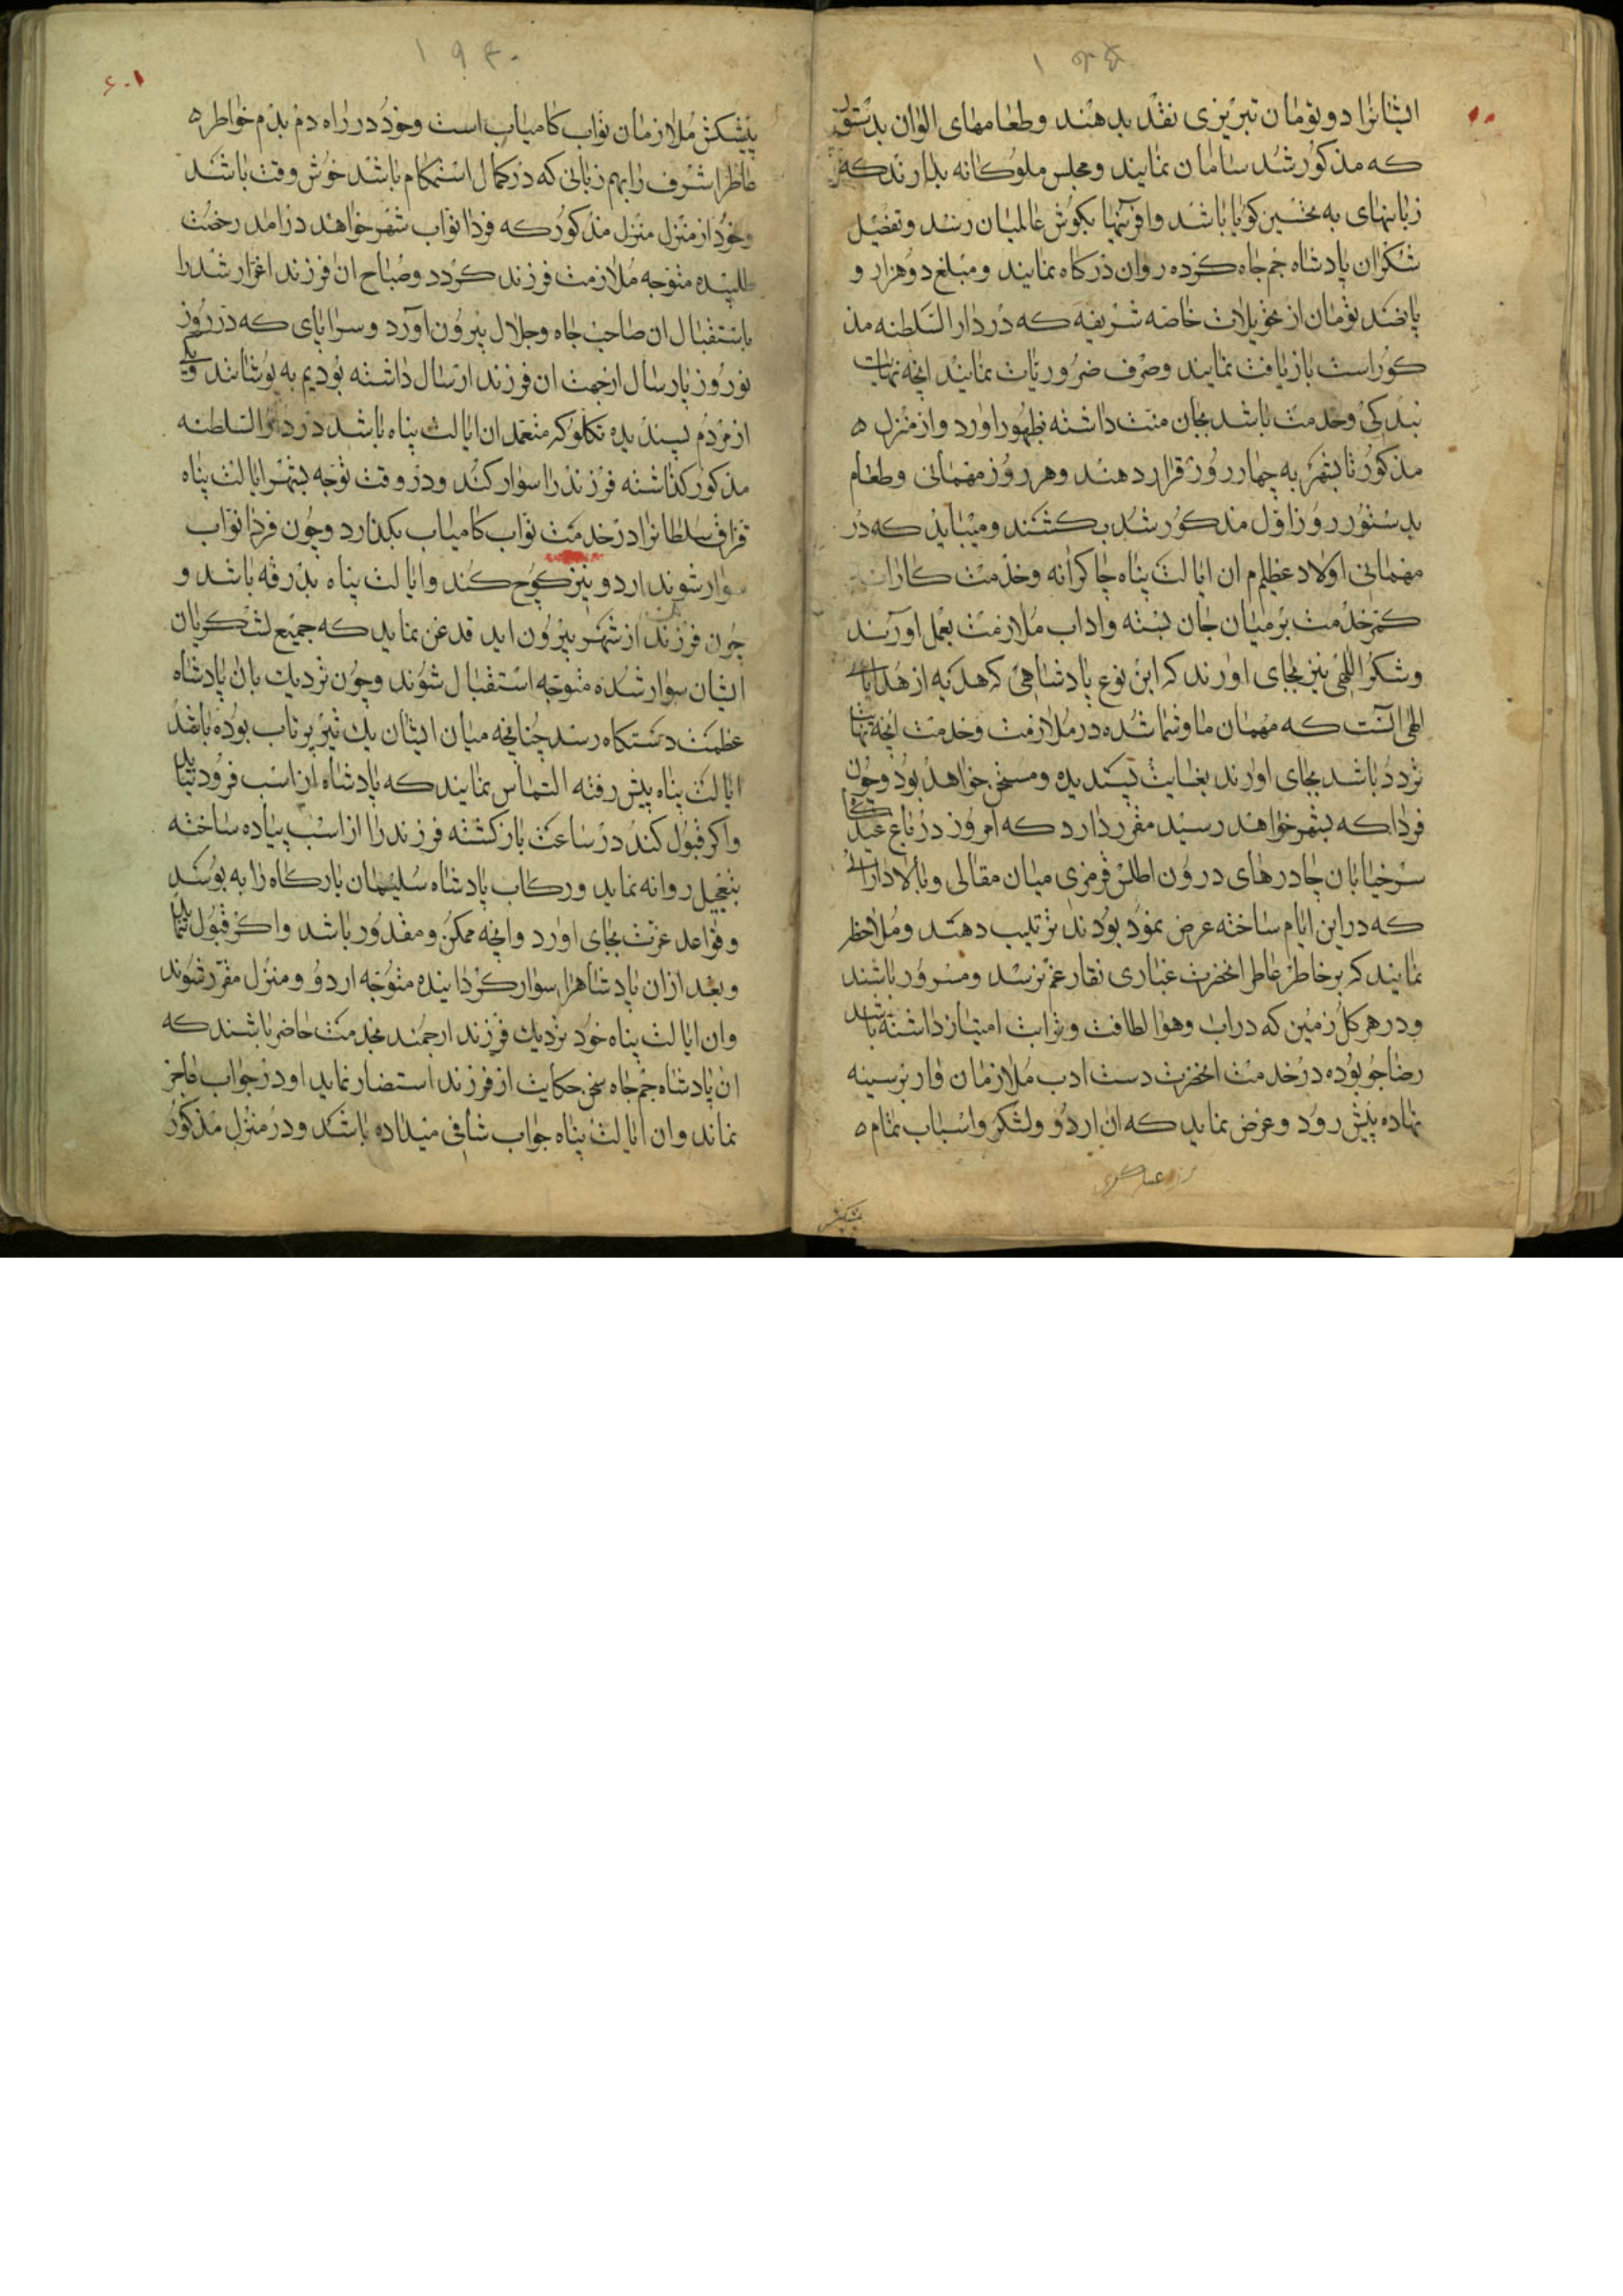 ایشانرا دو تومان تبریزی نقد بدهند و طعامهای الوان بدستوری
که مذکور شد سامان نمایند و مجلس ملوکانه بدارند که
زبانهای به تحسین کویا باشد و افرینها بکوش عالمیان رسد و تفصیل
شکران پادشاه جم جاه کرده روان درکاه نمایند و مبلغ دو هزار و
پانصد تومان از تحویلات خاصه شریفه که در دار السلطنه مذ
کور است بازیافت نمایند و صرف ضروریات نمایند انچه نهایت
بندکی و خدمت باشد بجان منت داشته بظهور اورد و از منزل
مذکور تا بشهر به چهار روز قرار دهند و هر روز مهمانی و طعام
بدستور روز اول مذکور شد بکشند و میباید که در
مهمانی اولاد عظام ان ایالت پناه چاکرانه و خدمت کارانه
کمر خدمت بر میان جان بسته و اداب ملازمت بعمل اورند
و شکر اللهی نیز بجای اورند که این نوع پادشاهی که هدیه از هدایای
الهی است که مهمان ما و شما شده در ملازمت و خدمت انچه نهایت
تردد باشد بجای اورند بغایت پسندیده و مستحسن خواهد بود و چون
فردا که بشهر خواهند رسید مقرر دارد که امروز در باغ عیدکاه
سر خیابان چادرهای درون اطلس قرمزی میان مقالی و بالا دارائی
که در این ایام ساخته عرض نمود بودند ترتیب دهند و ملاحظه
نمایند که بر خاطر عاطر انحضرت غباری نقار غم نرسد و مسرور باشند
و در هر کل زمین که در اب و هوا لطافت و نزاهت امتیاز داشته باشد
رضا جو بوده در خدمت انحضرت دست ادب ملازمان وار بر سینه
نهاده پیش رود و عرض نماید که ان اردو و لشکر و اسباب تمام
پیشکش
پیشکش ملازمان نواب کامیاب است و خود در راه دم بدم خواطر
خاطر اشرف را بهم زبانی که در کمال استحکام باشد خوش وقت باشد
و خود از منزل منزل مذکور که فردا نواب شهر خواهند درامد رخصت
طلبیده متوجه ملازمت فرزند کردد و صباح ان فرزند اعز ارشد را
باستقبال ان صاحب جاه و جلال بیرون اورد و سراپای که در روز
نوروز پارسال ارجهت ان فرزند ارسال داشته بودیم به پوشانند و یکی
از مردم پسندیده تکلو که معتمد ان ایالت پناه باشد در دار السلطنه
مذکور کذاشته فرزند را سوار کند و در وقت توجه بشهر ایالت پناه
قزاق سلطانرا در خدمت نواب کامیاب بکذارد و چون فردا نواب
سوار شوند اردو نیز کوچ کند و ایالت پناه بدرقه باشد و
چون فرزند از شهر بیرون اید قدغن نماید که جمیع لشکریان
ایشان سوار شده متوجه استقبال شوند و چون نزدیک بان پادشاه
عظمت دستکاه رسد چنانچه میان ایشان یک تیر پرتاب بوده باشد
ایالت پناه پیش رفته التماس نمایند که پادشاه از اسب فرود نیاید
و اکر قبول کند در ساعت بازکشته فرزند را از اسب پیاده ساخته
بتعجیل روانه نماید و رکاب پادشاه سلیمان بارکاه را به بوسند
و قواعد عزت بجای اورد و انچه ممکن و مقدور باشد و اکر قبول ننماید
و بعد از ان پادشاهرا سوار کردانیده متوجه اردو و منزل مقرر شوند
و ان ایالت پناه خود نزدیک فرزند ارجمند بخدمت حاضر باشند که
ان پادشاه جم جاه سخن حکایت از فرزند استفسار نماید او در جواب عاجز
نماند و ان ایالت پناه جواب شافی میداده باشد و در منزل مذکور